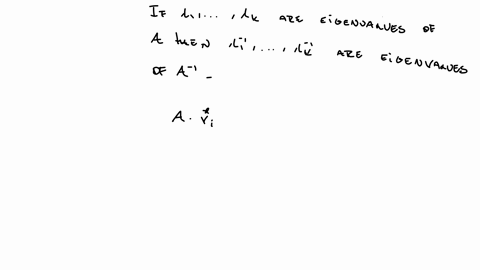 IF λ1, ..., λK ARE EIGENVALUES OF
A THEN λ1⁻¹, ..., λK⁻¹ ARE EIGENVALUES
OF A⁻¹ -
A · v⃗i